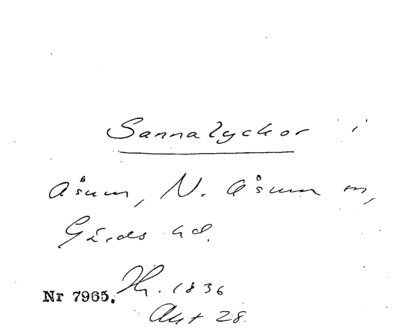 Sannalyckor i
Åsum, N. Åsum sn,
Gärds hd.
Nr 7965. Kr. 1836
Akt 28.